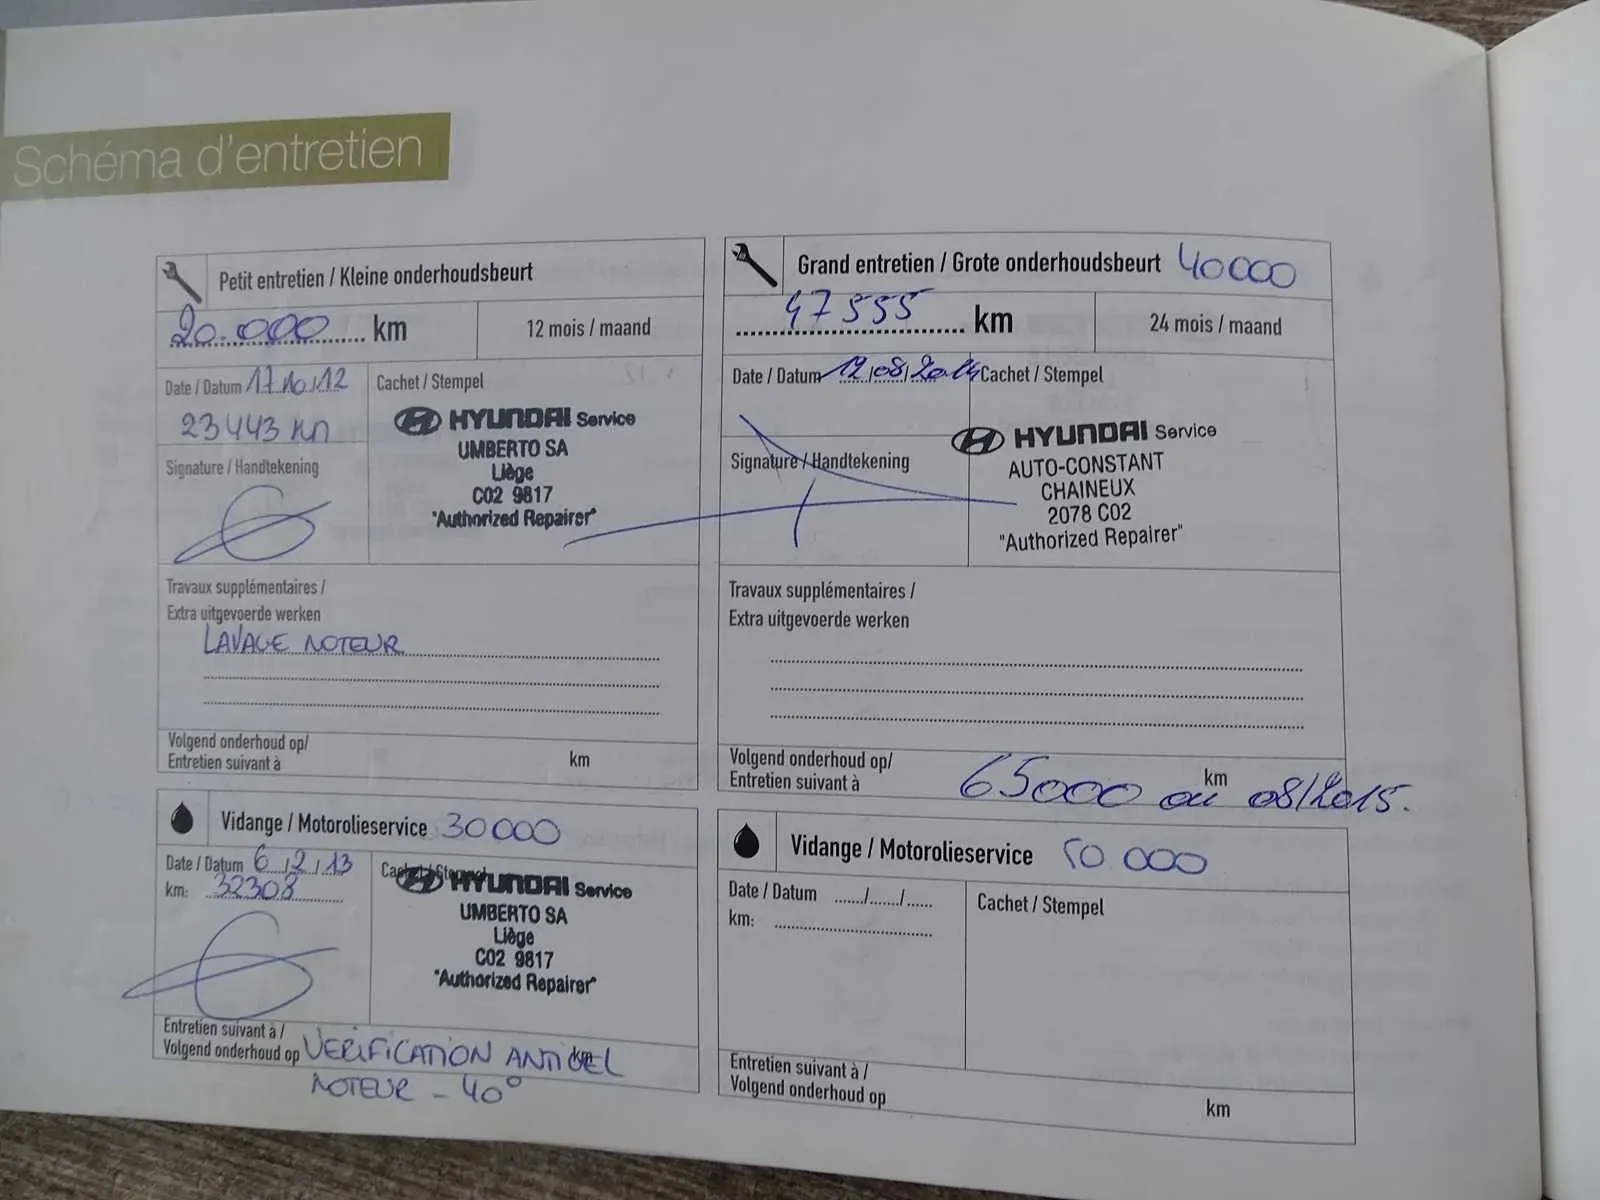 Schéma d'entretien
Petit entretien / Kleine onderhoudsbeurt
20.000 km
12 mois / maand
Date / Datum 17/10/12
23443 km
Cachet / Stempel
HYUNDAI Service
UMBERTO SA
Liège
C02 9817
"Authorized Repairer"
Signature / Handtekening
Travaux supplémentaires /
Extra uitgevoerde werken
LAVAGE MOTEUR
Volgend onderhoud op/
Entretien suivant à
km
Vidange / Motorolieservice 30000
Date / Datum 6/2/13
km: 32308
Cachet / Stempel
HYUNDAI Service
UMBERTO SA
Liège
C02 9817
"Authorized Repairer"
Entretien suivant à /
Volgend onderhoud op
km
VERIFICATION ANTIGEL
MOTEUR - 40°
Grand entretien / Grote onderhoudsbeurt 40000
47555 km
24 mois / maand
Date / Datum 12/08/2014
Cachet / Stempel
HYUNDAI Service
AUTO-CONSTANT
CHAINEUX
2078 C02
"Authorized Repairer"
Signature / Handtekening
Travaux supplémentaires /
Extra uitgevoerde werken
Volgend onderhoud op/
Entretien suivant à
65000 km ou 08/2015.
Vidange / Motorolieservice 50 000
Date / Datum ....../....../......
km:
Cachet / Stempel
Entretien suivant à /
Volgend onderhoud op
km